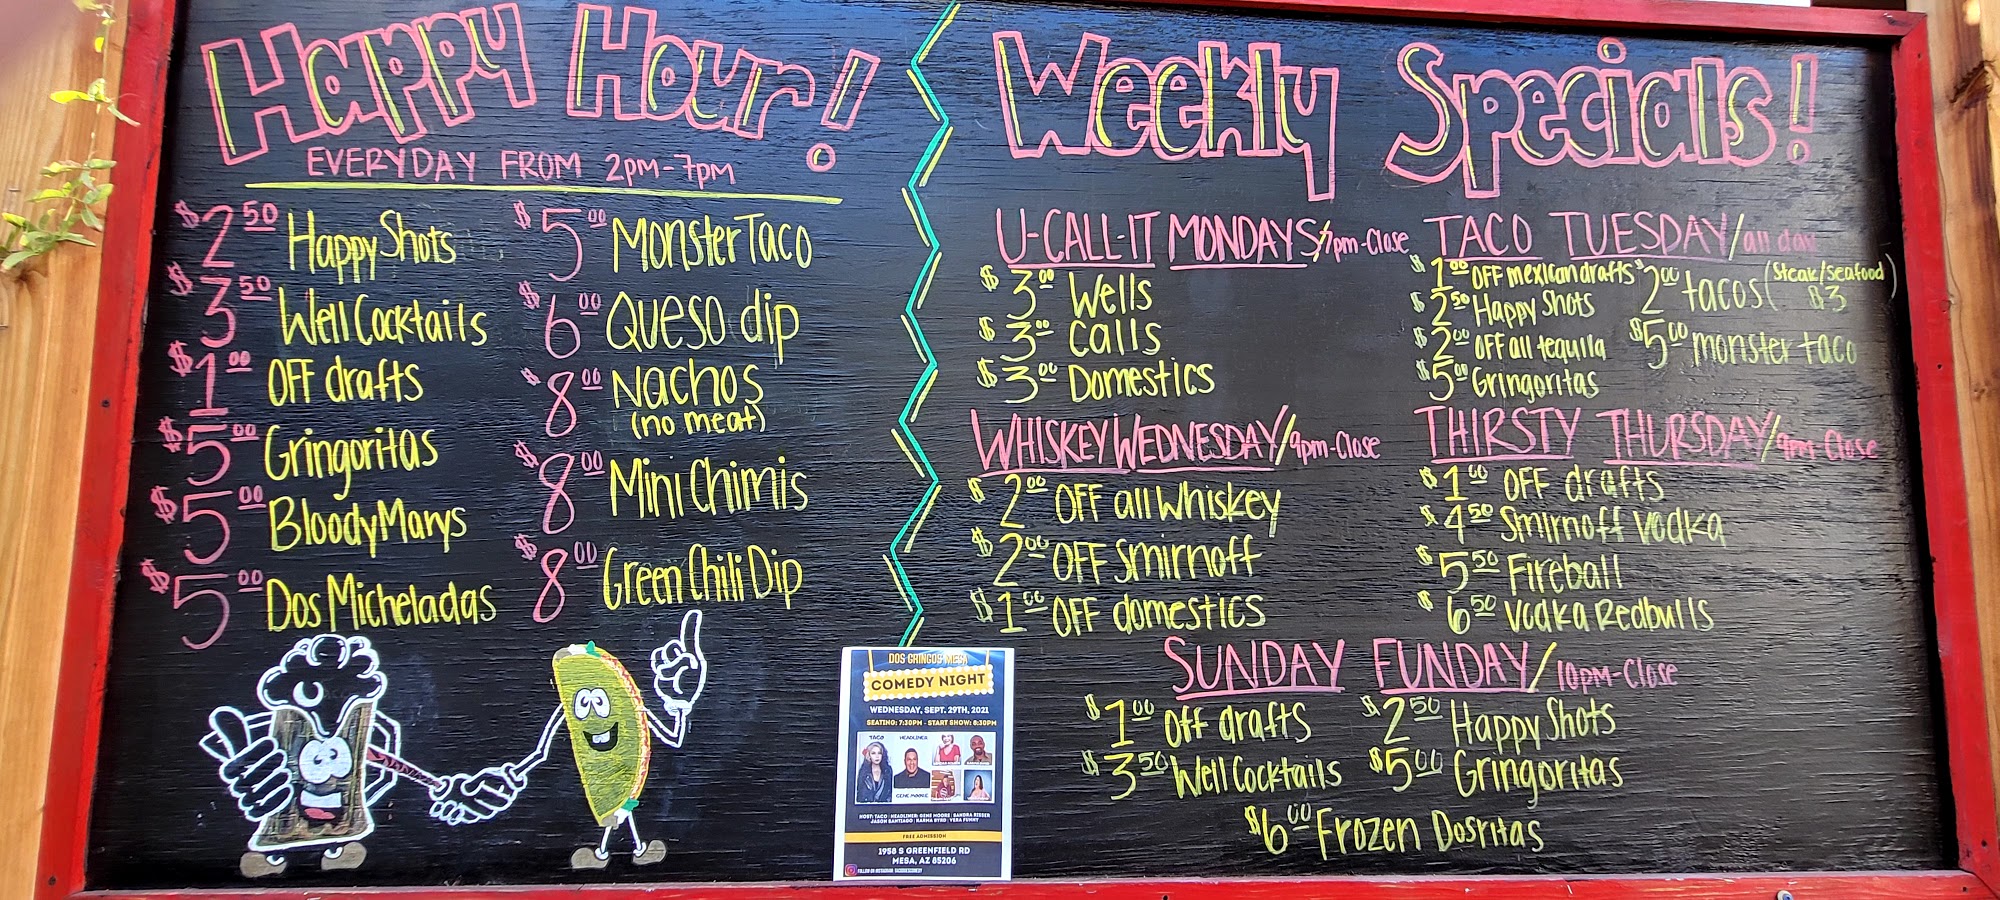 Happy Hour!
EVERYDAY FROM 2PM-7PM
$2.50 Happy Shots
$3.50 Well Cocktails
$1.00 OFF drafts
$5.00 Gringoritas
$5.00 Bloody Marys
$5.00 Dos Micheladas
$5.00 Monster Taco
$6.00 Queso dip
$8.00 Nachos
(no meat)
$8.00 Mini Chimis
$8.00 Green Chili Dip
Weekly Specials!
U-CALL-IT MONDAYS/7pm-Close
$3.00 Wells
$3.00 Calls
$3.00 Domestics
TACO TUESDAY/all day
$1.00 OFF mexican drafts
$2.50 Happy Shots
$2.00 OFF all tequila
$5.00 Gringoritas
$2.00 tacos (Steak/Seafood
$3)
$5.00 monster taco
WHISKEY WEDNESDAY/9pm-Close
$2.00 OFF all Whiskey
$2.00 OFF Smirnoff
$1.00 OFF domestics
THIRSTY THURSDAY/9pm-Close
$1.00 OFF drafts
$4.50 Smirnoff Vodka
$5.50 Fireball
$6.50 Vodka Redbulls
SUNDAY FUNDAY/10pm-Close
$1.00 Off drafts
$3.50 Well Cocktails
$2.50 Happy Shots
$5.00 Gringoritas
$6.00 Frozen Dosritas
DOS GRINGOS MESA
COMEDY NIGHT
WEDNESDAY, SEPT. 29TH, 2021
SEATING: 7:30PM - START SHOW: 8:30PM
TACO
HEADLINER
GENE MOORE
HOST: TACO | HEADLINER: GENE MOORE | SANDRA RISSER
JASON SANTIAGO | KARMA BYRD | VERA FUNNY
FREE ADMISSION
1958 S GREENFIELD RD
MESA, AZ 85206